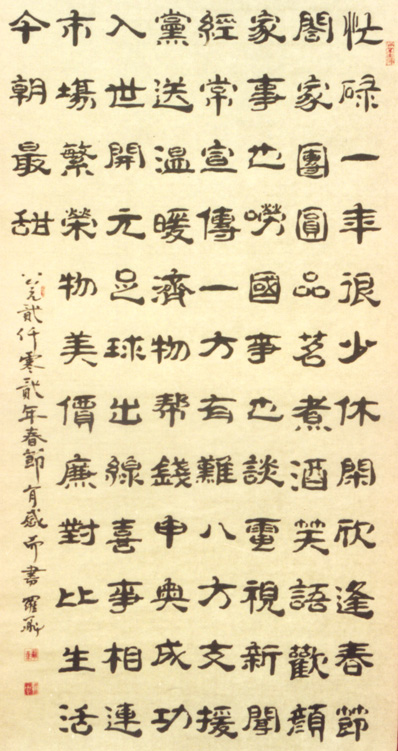 忙碌一年很少休閑欣逢春節
閤家團圓品茗煮酒笑語歡顏
家事也嘮國事也談電視新聞
經常宣傳一方有難八方支援
黨送溫暖濟物帮錢申奧成功
入世開元足球出線喜事相連
市塲繁榮物美價廉對比生活
今朝最甜
公元貳仟零貳年春節有感而書 羅